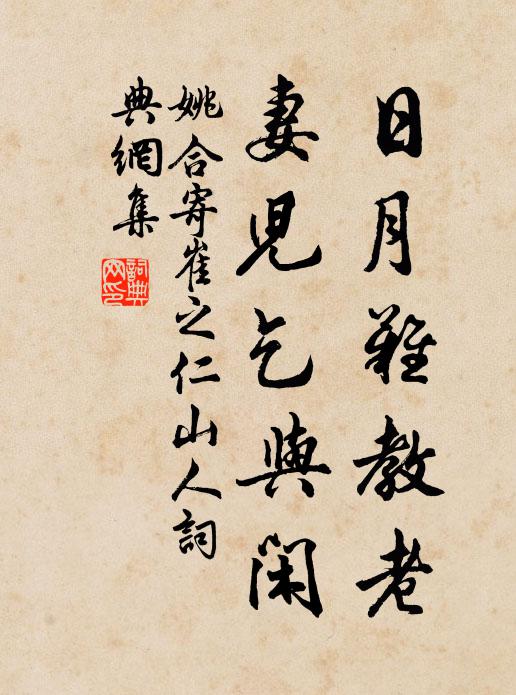 日月難教老
妻兒乞與閑
姚合寄崔之仁山人詞
典網集
詞典
网印